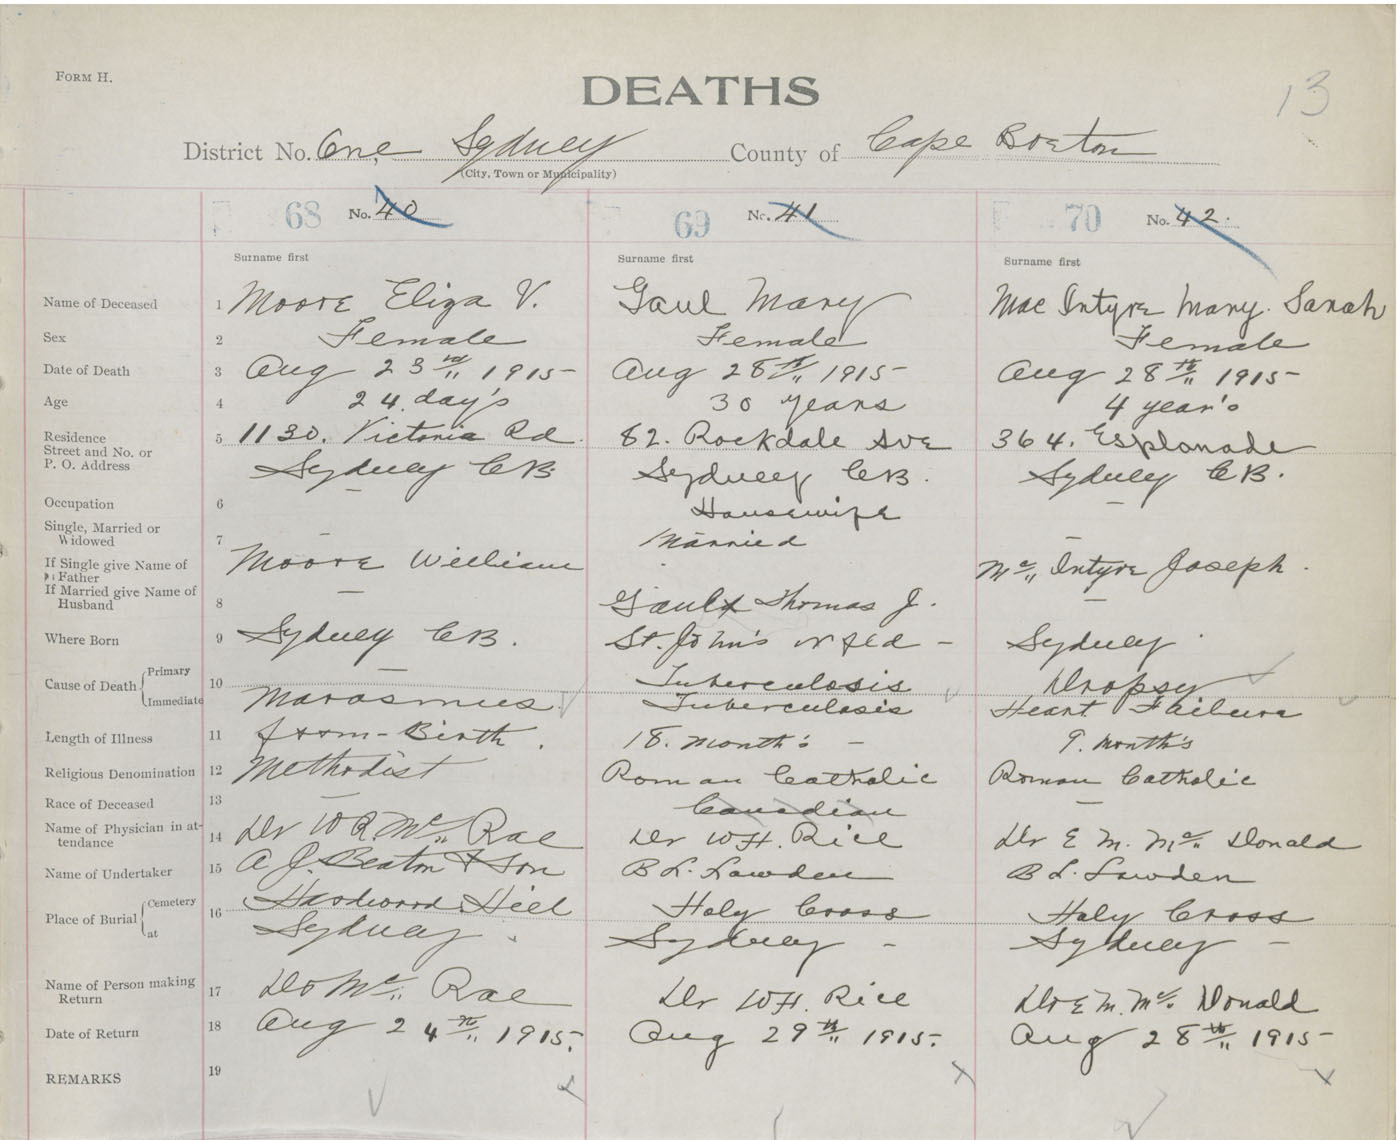 FORM H.
DEATHS
13
District No. One, Sydney County of Cape Breton
(City, Town or Municipality)
68 No. 40 69 No. 41 70 No. 42.
Surname first Surname first Surname first
Name of Deceased 1 Moore Eliza V. Gaul Mary Mac Intyre Mary. Sarah
Sex 2 Female Female Female
Date of Death 3 Aug 23rd 1915 Aug 28th 1915 Aug 28th 1915
Age 4 24 day's 30 years 4 year's
Residence 5 1130. Victoria Rd. 82. Rockdale Ave 364. Esplanade
Street and No. or
P. O. Address Sydney CB Sydney CB. Sydney CB.
Occupation 6 — Housewife —
Single, Married or
Widowed 7 — Married -
If Single give Name of
Father Moore William Mc Intyre Joseph.
If Married give Name of
Husband 8 — Gault Thomas J. —
Where Born 9 Sydney CB. St. John's Nfld - Sydney
Cause of Death { Primary 10 — Tuberculosis Dropsy
Immediate Marasmus. Tuberculosis Heart Failure
Length of Illness 11 from - Birth. 18. month's - 9. month's
Religious Denomination 12 Methodist Roman Catholic Roman Catholic
Race of Deceased 13 — Canadian —
Name of Physician in at-
tendance 14 Dr W R. Mc Rae Dr W.H. Rice Dr E M. Mc Donald
Name of Undertaker 15 A J. Beaton & Son B L. Lowden B L. Lowden
Place of Burial { Cemetery 16 Hardwood Hill Holy Cross Holy Cross
at Sydney. Sydney - Sydney -
Name of Person making
Return 17 Dr Mc Rae Dr W.H. Rice Dr E M. Mc Donald
Date of Return 18 Aug 24th 1915. Aug 29th 1915. Aug 28th 1915
REMARKS 19